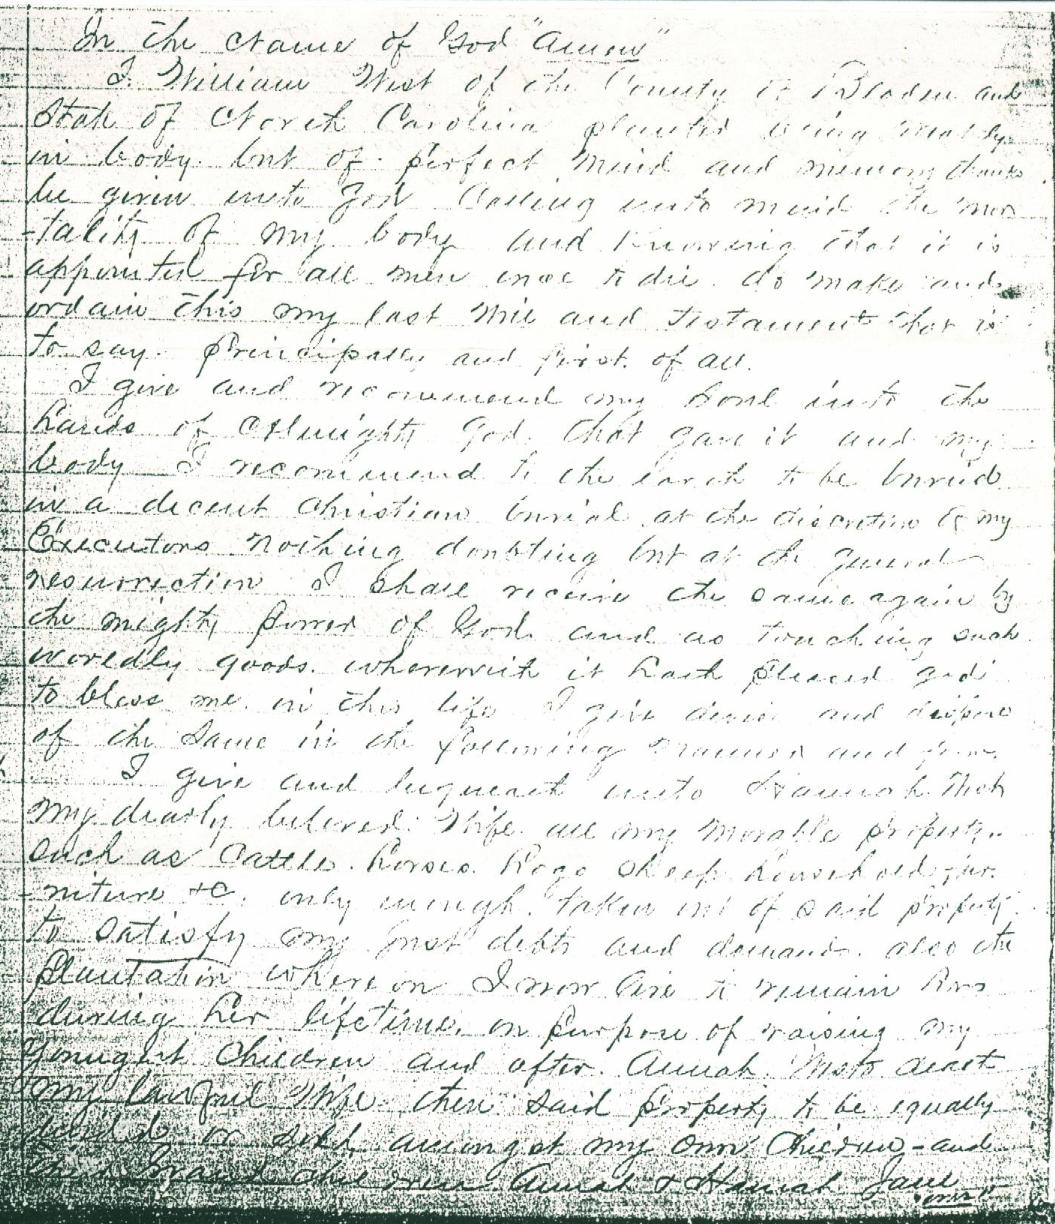 In the Name of God "Amen"
I William West of the County of Bladen and
State of North Carolina planter being weakly
in body but of perfect mind and memory thanks
be given unto God Calling unto mind the mor
-tality of my body and Knowing that it is
appointed for all men once to die do make and
ordain this my last Will and Testament that is
to say principally and first of all.
I give and recommend my Soul into the
hands of Almighty God that gave it and my
body I recommend to the earth to be buried
in a decent Christian burial at the discretion of my
Executors nothing doubting but at the general
resurrection I shall receive the same again by
the mighty power of God and as touching such
worldly goods wherewith it hath pleased god
to bless me in this life I give devise and dispose
of the Same in the following manner and form
I give and bequeath unto Hannah West
my dearly beloved Wife all my movable property
such as Cattle horses hogs sheep household fur
-niture &C. only enough taken out of said property
to satisfy my just debts and demands also the
plantation where on I now live to remain hers
during her lifetime on purpose of raising my
youngest Children and after Annah Wests death
my lawful Wife then said property to be equally
or sold amongst my own Children - and
Grand children Annah & Hannah Jane